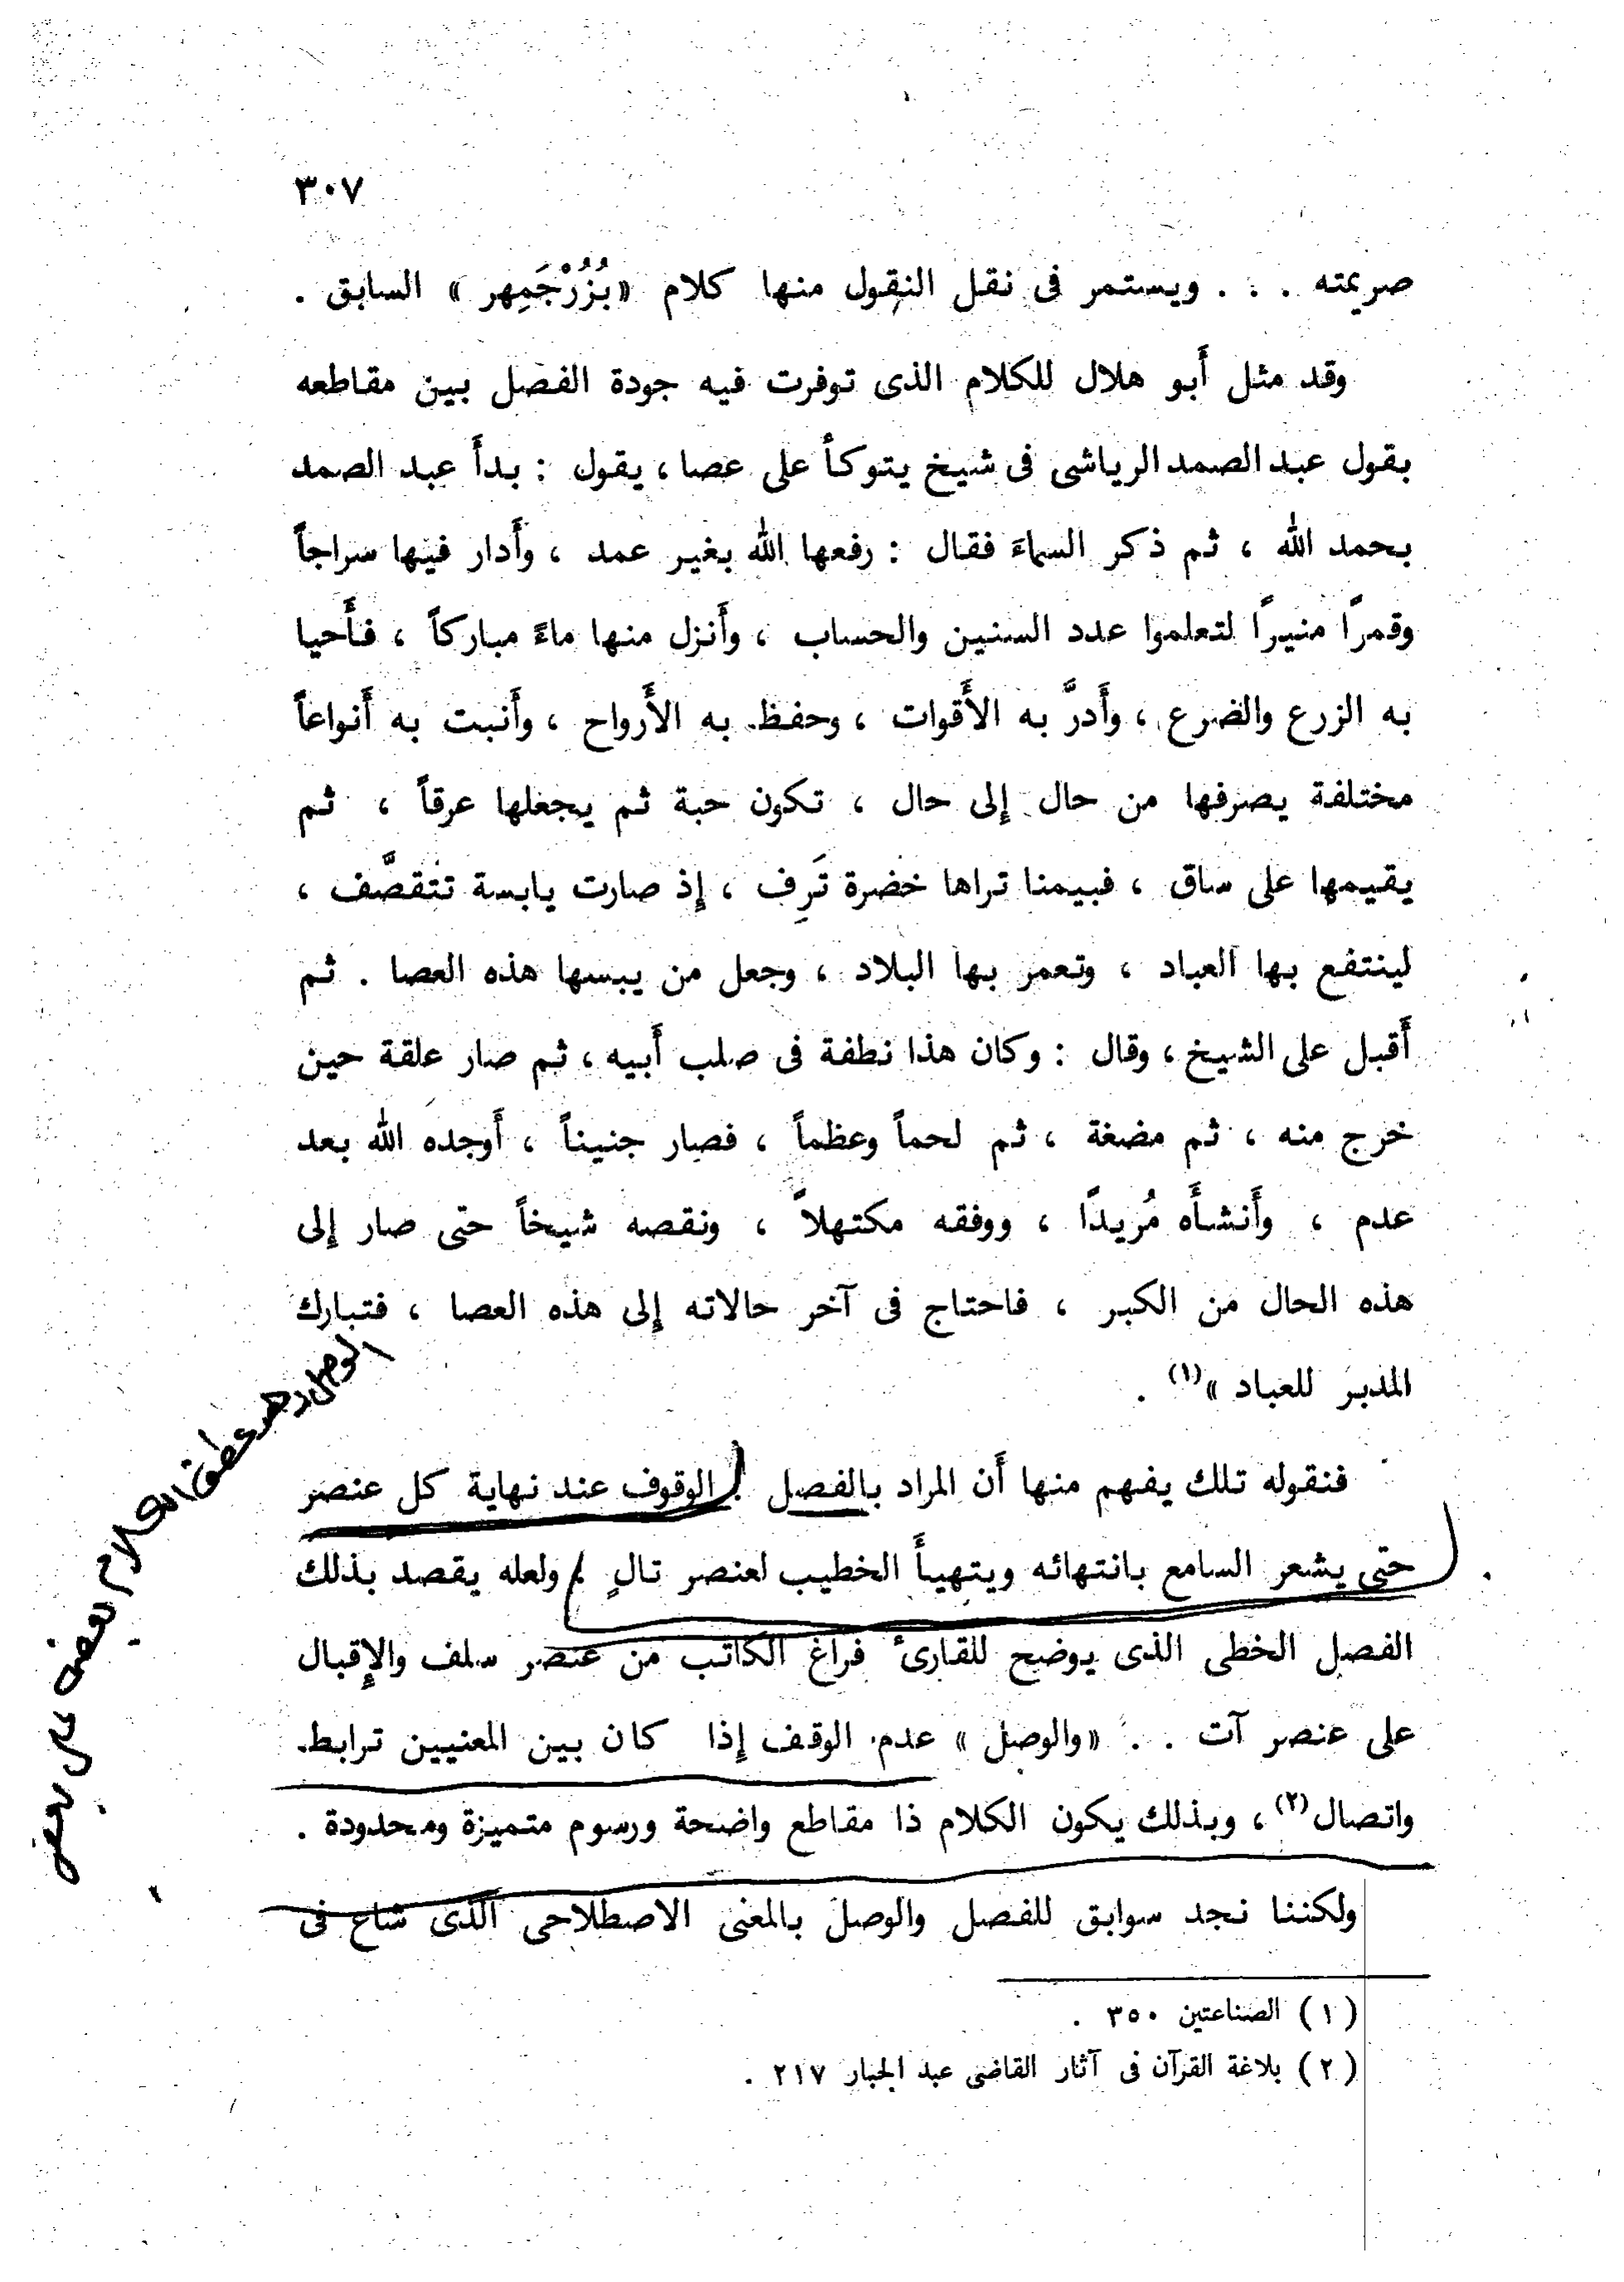 ٣٠٧
صريمته . . . ويستمر فى نقل النقول منها كلام «بُزُرْجَمِهر» السابق .
وقد مثل أَبو هلال للكلام الذى توفرت فيه جودة الفصل بين مقاطعه
بقول عبد الصمد الرياشى فى شيخ يتوكأ على عصا ، يقول : بدأَ عبد الصمد
بحمد الله ، ثم ذكر السماءَ فقال : رفعها الله بغير عمد ، وأَدار فيها سراجاً
وقمرًا منيرًا لتعلموا عدد السنين والحساب ، وأَنزل منها ماءً مباركاً ، فأَحيا
به الزرع والضرع ، وأَدرَّ به الأَقوات ، وحفظ به الأَرواح ، وأَنبت به أَنواعاً
مختلفة يصرفها من حال إلى حال ، تكون حبة ثم يجعلها عرقاً ، ثم
يقيمها على ساق ، فبيمنا تراها خضرة تَرِف ، إذ صارت يابسة تتقصَّف ،
لينتفع بها العباد ، وتعمر بها البلاد ، وجعل من يبسها هذه العصا . ثم
أَقبل على الشيخ ، وقال : وكان هذا نطفة فى صلب أَبيه ، ثم صار علقة حين
خرج منه ، ثم مضغة ، ثم لحماً وعظماً ، فصار جنيناً ، أَوجده الله بعد
عدم ، وأَنشأَه مُريدًا ، ووفقه مكتهلاً ، ونقصه شيخاً حتى صار إلى
هذه الحال من الكبر ، فاحتاج فى آخر حالاته إلى هذه العصا ، فتبارك
المدبر للعباد »(١) .
فنقوله تلك يفهم منها أَن المراد بالفصل : الوقوف عند نهاية كل عنصر
حتى يشعر السامع بانتهائه ويتهيأَ الخطيب لعنصر تالٍ ، ولعله يقصد بذلك
الفصل الخطى الذى يوضح للقارئ فراغ الكاتب من عنصر سلف والإقبال
على عنصر آت . . «والوصل» عدم الوقف إذا كان بين المعنيين ترابط
واتصال(٢) ، وبذلك يكون الكلام ذا مقاطع واضحة ورسوم متميزة ومحدودة .
ولكننا نجد سوابق للفصل والوصل بالمعنى الاصطلاحى الذى شاع فى
(١) الصناعتين ٣٥٠ .
(٢) بلاغة القرآن فى آثار القاضى عبد الجبار ٢١٧ .
الوصل هو عطف الكلام بعضه على بعض